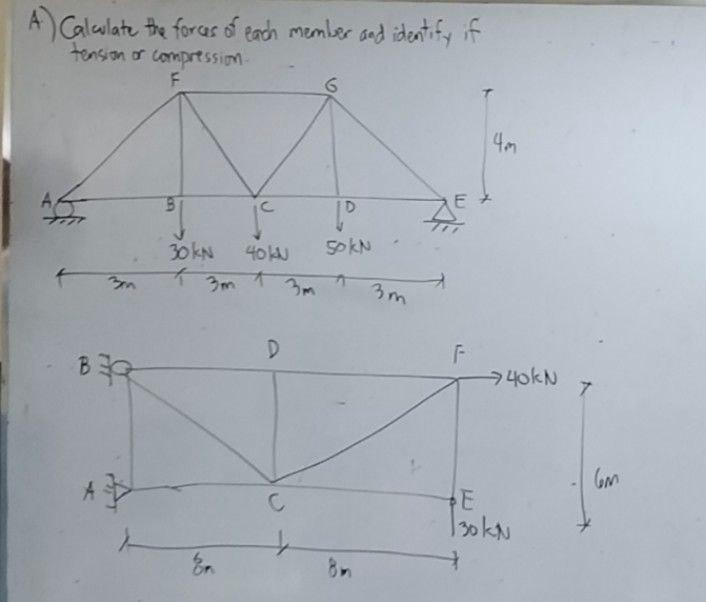 A.) Calculate the forces of each member and identify if
tension or compression.
F G
4m
A B C D E
30kN 40kN 50kN
3m 3m 3m 3m
B D F 40kN
6m
A C E
30kN
8m 8m